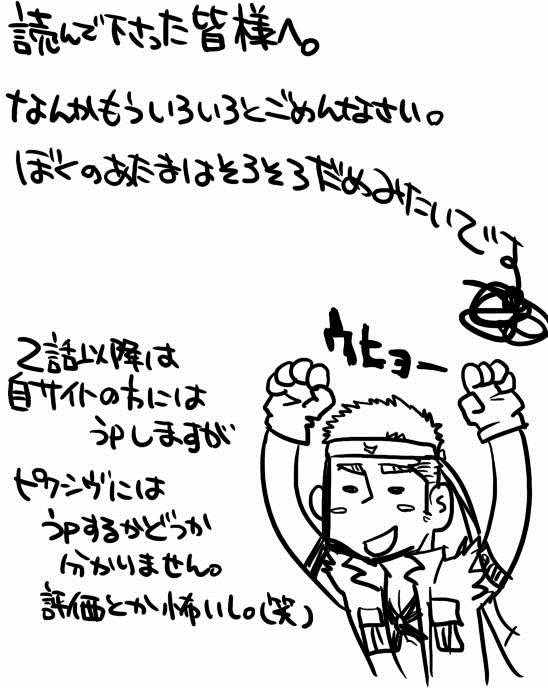 読んで下さった皆様へ。
なんかもういろいろとごめんなさい。
ぼくのあたまはそろそろだめみたいです
ウヒョー
2話以降は
自サイトの方には
うpしますが
ピクシヴには
うpするかどうか
分かりません。
評価とか怖いし。(笑)